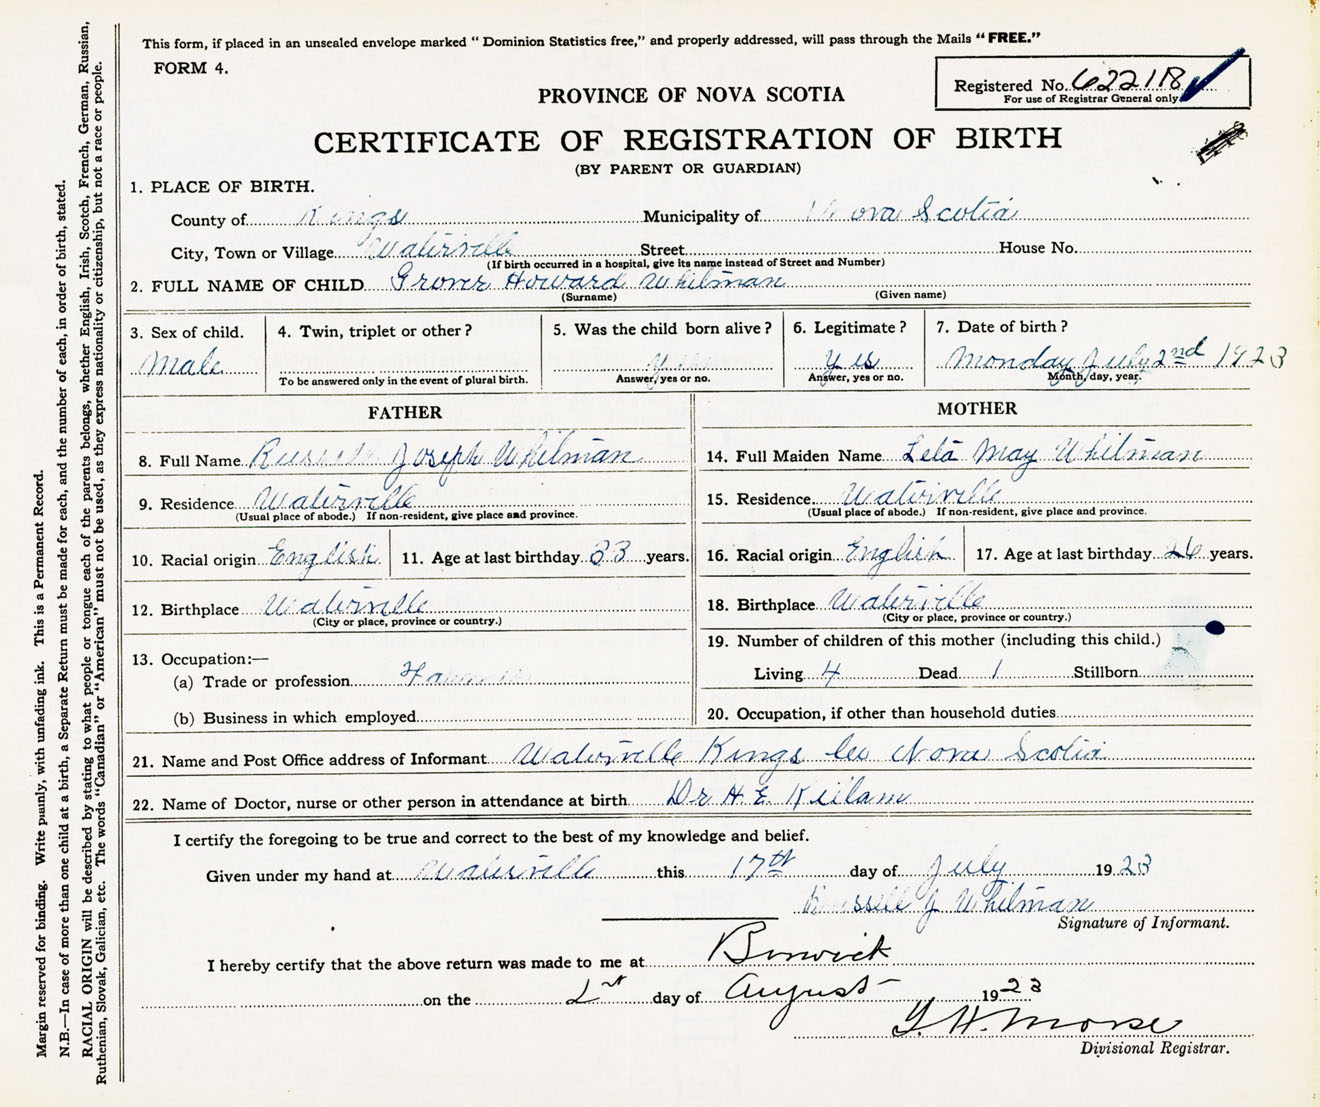 This form, if placed in an unsealed envelope marked “Dominion Statistics free,” and properly addressed, will pass through the Mails “FREE.”
FORM 4.
Registered No. 622118
For use of Registrar General only
PROVINCE OF NOVA SCOTIA
CERTIFICATE OF REGISTRATION OF BIRTH
(BY PARENT OR GUARDIAN)
1. PLACE OF BIRTH.
County of Kings Municipality of Nova Scotia
City, Town or Village Waterville Street House No.
(If birth occurred in a hospital, give its name instead of Street and Number)
2. FULL NAME OF CHILD Grover Howard Whitman
(Surname) (Given name)
3. Sex of child. Male
4. Twin, triplet or other?
To be answered only in the event of plural birth.
5. Was the child born alive? yes
Answer, yes or no.
6. Legitimate? yes
Answer, yes or no.
7. Date of birth? Monday July 2nd 1923
Month, day, year.
FATHER
8. Full Name Russell Joseph Whitman
9. Residence Waterville
(Usual place of abode.) If non-resident, give place and province.
10. Racial origin English 11. Age at last birthday 33 years.
12. Birthplace Waterville
(City or place, province or country.)
13. Occupation:—
(a) Trade or profession
(b) Business in which employed
MOTHER
14. Full Maiden Name Leta May Whitman
15. Residence Waterville
(Usual place of abode.) If non-resident, give place and province.
16. Racial origin English 17. Age at last birthday 26 years.
18. Birthplace Waterville
(City or place, province or country.)
19. Number of children of this mother (including this child.)
Living 4 Dead 1 Stillborn
20. Occupation, if other than household duties
21. Name and Post Office address of Informant Waterville Kings Co Nova Scotia
22. Name of Doctor, nurse or other person in attendance at birth Dr H. E. Killam
I certify the foregoing to be true and correct to the best of my knowledge and belief.
Given under my hand at Waterville this 17th day of July 1923
Russell J Whitman
Signature of Informant.
I hereby certify that the above return was made to me at Berwick
on the 1st day of August 1923
H. Morse
Divisional Registrar.
Margin reserved for binding. Write plainly, with unfading ink. This is a Permanent Record.
N.B.—In case of more than one child at a birth, a Separate Return must be made for each, and the number of each, in order of birth, stated.
RACIAL ORIGIN will be described by stating to what people or tongue each of the parents belongs, whether English, Irish, Scotch, French, German, Russian,
Ruthenian, Slovak, Galician, etc. The words “Canadian” or “American” must not be used, as they express nationality or citizenship, but not a race or people.